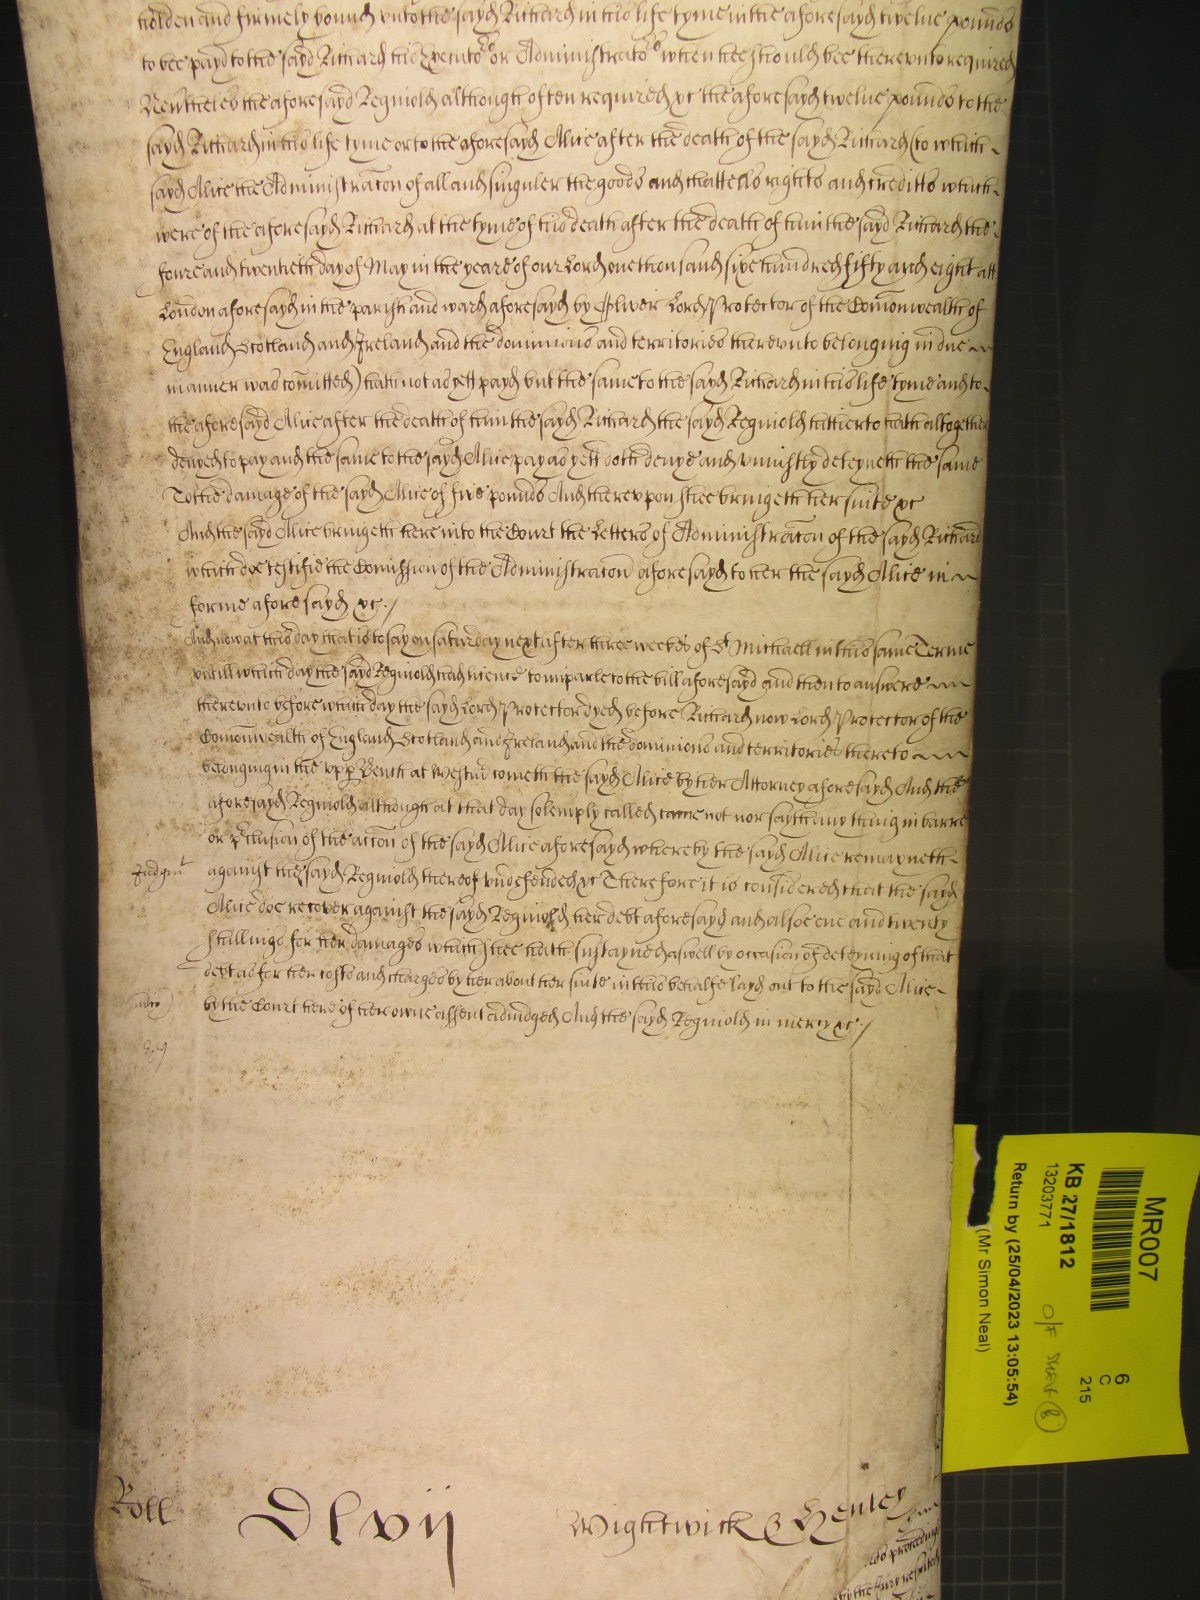 holden and firmely bound unto the sayd Richard in his life tyme in the aforesayd twelue pounds
to bee payd to the sayd Richard his Executors or Administrators when hee should bee therevnto required
Neuertheles the aforesayd Regnold although often required &c the aforesayd twelue pounds to the
sayd Richard in his life tyme or to the aforesayd Alice after the death of the sayd Richard (to which
sayd Alice the Administracon of all and singuler the goods and chattells rights and creditts which
were of the aforesayd Richard at the tyme of his death after the death of him the sayd Richard the
foure and twentieth day of May in the yeare of our Lord one thousand six hundred fifty and eight att
London aforesayd in the parish and ward aforesayd by Oliver Lord Protector of the Comonwealth of
England Scotland and Ireland and the dominions and territories therevnto belonging in due
manner was comitted) hath not as yett payd but the same to the sayd Richard in his life tyme and to
the aforesayd Alice after the death of him the sayd Richard the sayd Regnold hitherto hath altogether
denyed to pay and the same to the sayd Alice pay as yett doth denye and vniustly deteyneth the same
To the damage of the sayd Alice of five pounds And therevpon shee bringeth her suite &c
And the sayd Alice bringeth here into the Court the Letters of Administracon of the sayd Richard
which doe testifie the Comission of the Administracon aforesayd to her the sayd Alice in
forme aforesayd &c./
And now at this day that is to say on saturday next after three weekes of St Michaell in this same Terme
vntill which day the sayd Regnold had licence to imparle to the bill aforesayd and then to answere
therevnto before which day the sayd Lord Protector dyed before Richard now Lord Protector of the
Comonwealth of England Scotland and Ireland and the dominions and territories thereto
belonging in the vpp Bench at Westmr cometh the sayd Alice by her Attorney aforesayd And the
aforesayd Regnold although at that day solemply called came not nor sayth any thing in barre
or p'clusion of the accon of the sayd Alice aforesayd whereby the sayd Alice remayneth
Judgmt against the sayd Regnold thereof vndefended &c Therefore it is considered that the sayd
Alice doe recover against the sayd Regnold her debt aforesayd and alsoe one and twenty
shillings for her damages which shee hath susteyned aswell by occasion of deteyning of that
debt as for her costs and charges by her about her suite in this behalfe layd out to the sayd Alice
by the Court here of her owne assent adiudged And the sayd Regnold in mercy &c./
Roll Dlvij Wightwick & Henley
MR007
KB 27/1812
13203771
Return by (25/04/2023 13:05:54)
(Mr Simon Neal)
6
C
215
O/F